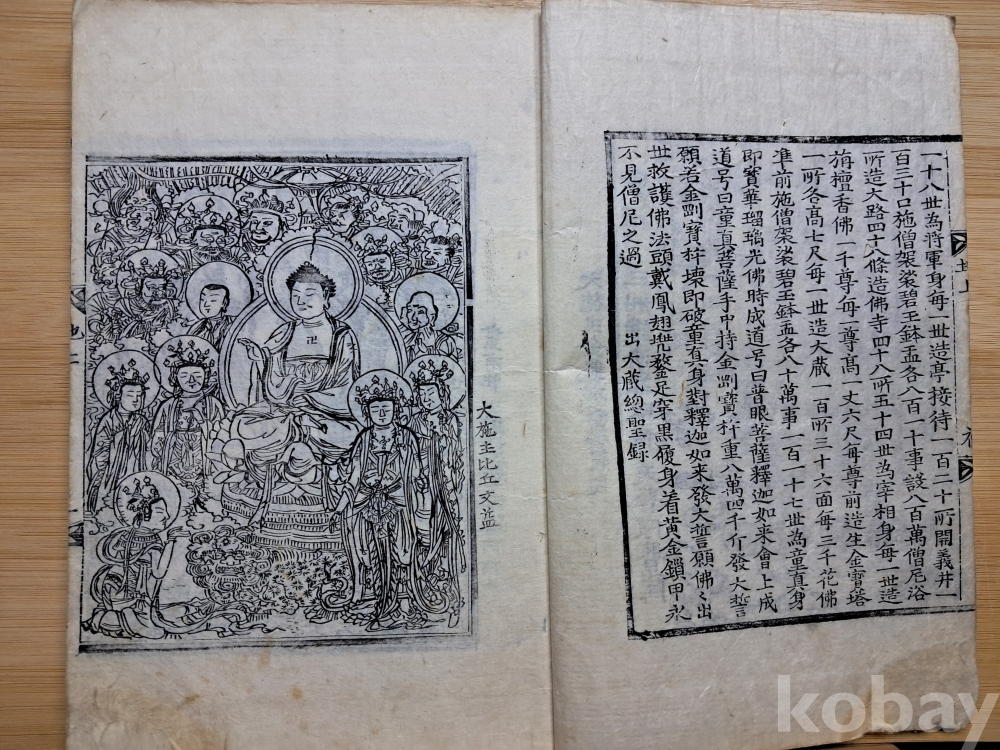 一十八世為將軍身每一世造亭接待一百二十所開義井一
百三十口施僧袈裟碧玉鉢盂各八百一十事設八百萬僧尼浴
所造大路四十八條造佛寺四十八所五十四世為宰相身每一世造
旃檀香佛一千尊每一尊高一丈六尺每尊前造生金寶塔
一所各高七尺每一世造大蔵一百所三十六面每三千花佛
准前施僧袈裟碧玉鉢盂各八十萬事一百一十七世為童真身
即寶華瑠璃光佛時成道号曰普眼菩薩釋迦如来會上成
道号曰童真菩薩手中持金剛寶杵重八萬四千斤發大誓
願若金剛寶杵壞即破童真身對釋迦如来發大誓願佛〻出
世救護佛法頭戴鳳翅兠鍪足穿黒履身着黄金鎖甲永
不見僧尼之過 出大蔵總聖録
大施主比丘文益
kobay